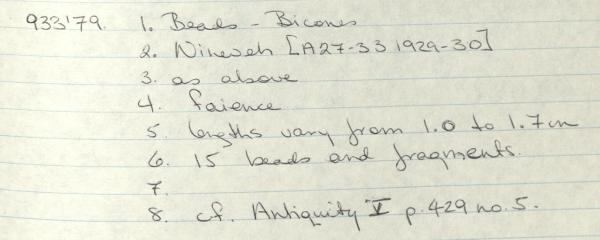 933'79. 1. Beads - Bicones
2. Nineveh [A27-33 1929-30]
3. as above
4. faience
5. lengths vary from 1.0 to 1.7cm
6. 15 beads and fragments.
7.
8. cf. Antiquity V p.429 no.5.